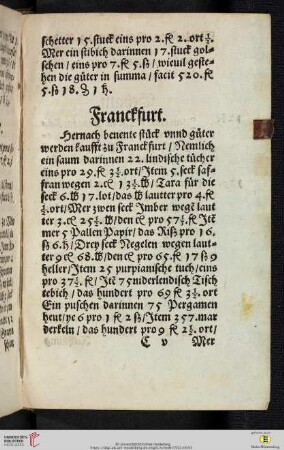 schetter 15. stuck eins pro 2. fl 2. ort ½.
Mer ein stibich darinnen 17. stuck gol⸗
schen / eins pro 7. fl 5. ß / wieuil geste⸗
hen die güter in summa / facit 520. fl
5. ß 18. ₰ 1 h.
Franckfurt.
Hernach benente stück vnnd güter
werden kaufft zu Franckfurt / Nemlich
ein saum darinnen 22. lindische tücher
eins pro 29. fl 3½. ort / Item 5. seck saf⸗
fran wegen 2. 13½. / Tara für die
seck 6. 17. lot / das lautter pro 4. fl
½. ort / Mer zwen seck Imber wegẽ laut
ter 3. 25½. / den pro 57½. fl Itẽ
mer 5 Pallen Papir / das Riß pro 16.
ß 6. h / Drey seck Negelen wegen laut⸗
ter 9 68. / den pro 65. fl 17 ß 9
heller / Item 25 purpianische tuch / eins
pro 37½. fl / Itẽ 75 niderlendisch Tisch
tebich / das hundert pro 69 fl 3½. ort
Ein puschen darinnen 75 Pergamen
heut / ye 6 pro 1 fl 2 ß / Item 357. mar
derkeln / das hundert pro 9 fl 2½. ort /
C v Mer